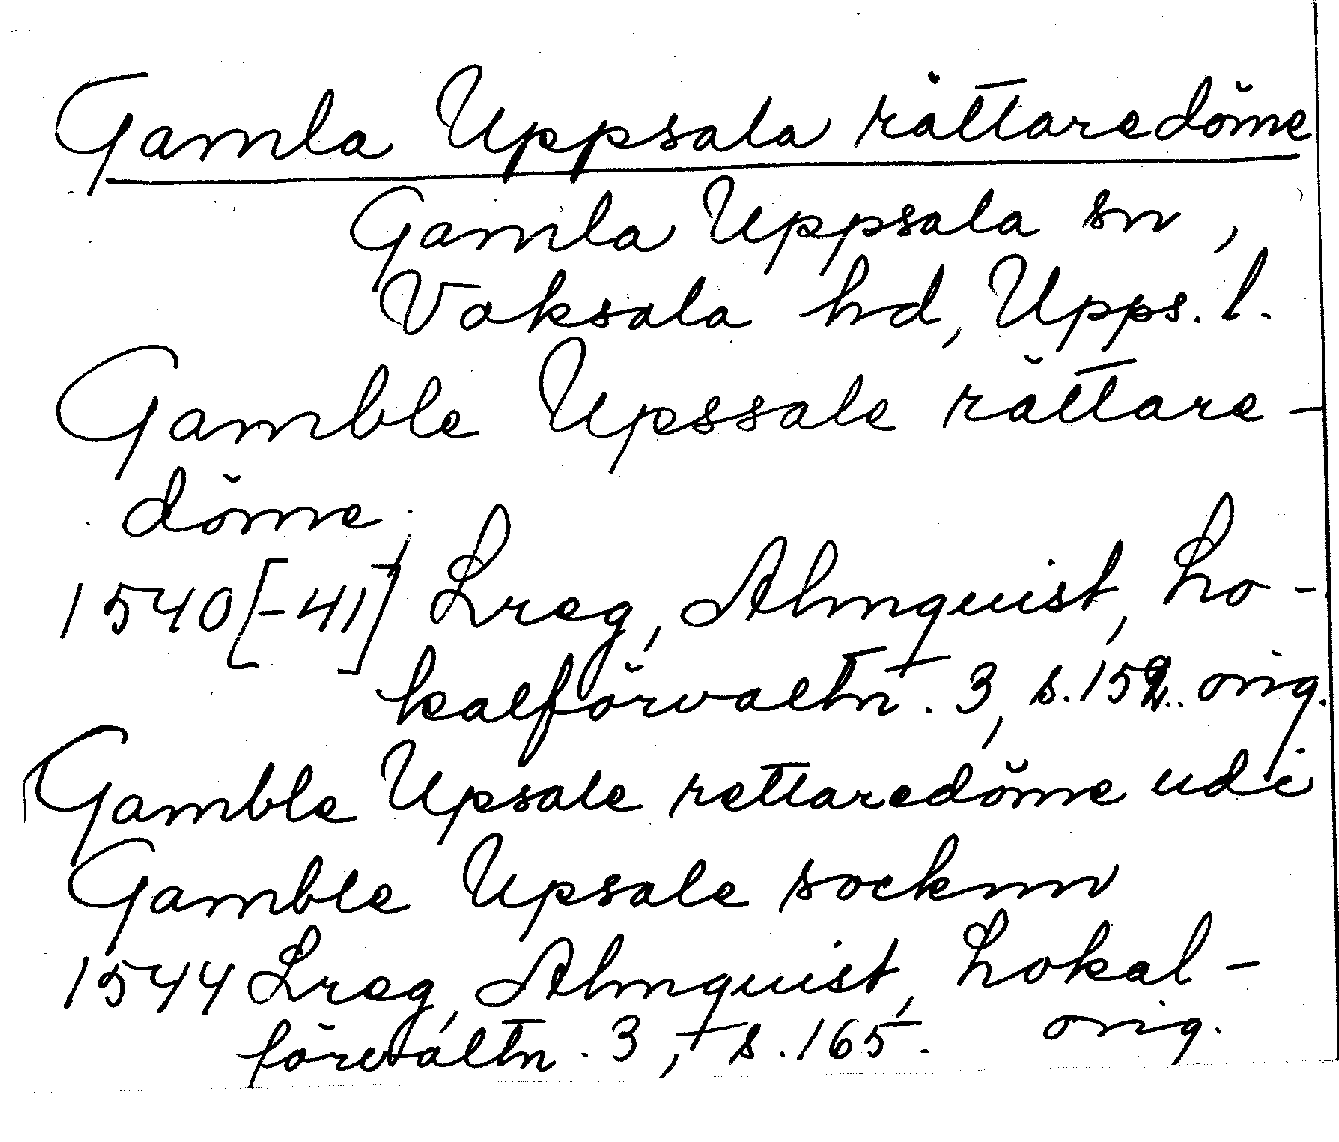 Gamla Uppsala rättaredöme
Gamla Uppsala sn,
Vaksala hd, Upps. l.
Gamble Upssale rättare-
döme
1540[-41] Lreg, Almquist, Lo-
kalförvaltn. 3, s. 152. orig.
Gamble Upsale rettaredöme udi
Gamble Upsale socknn
1544 Lreg, Almquist, Lokal-
förvaltn. 3, s. 165. orig.